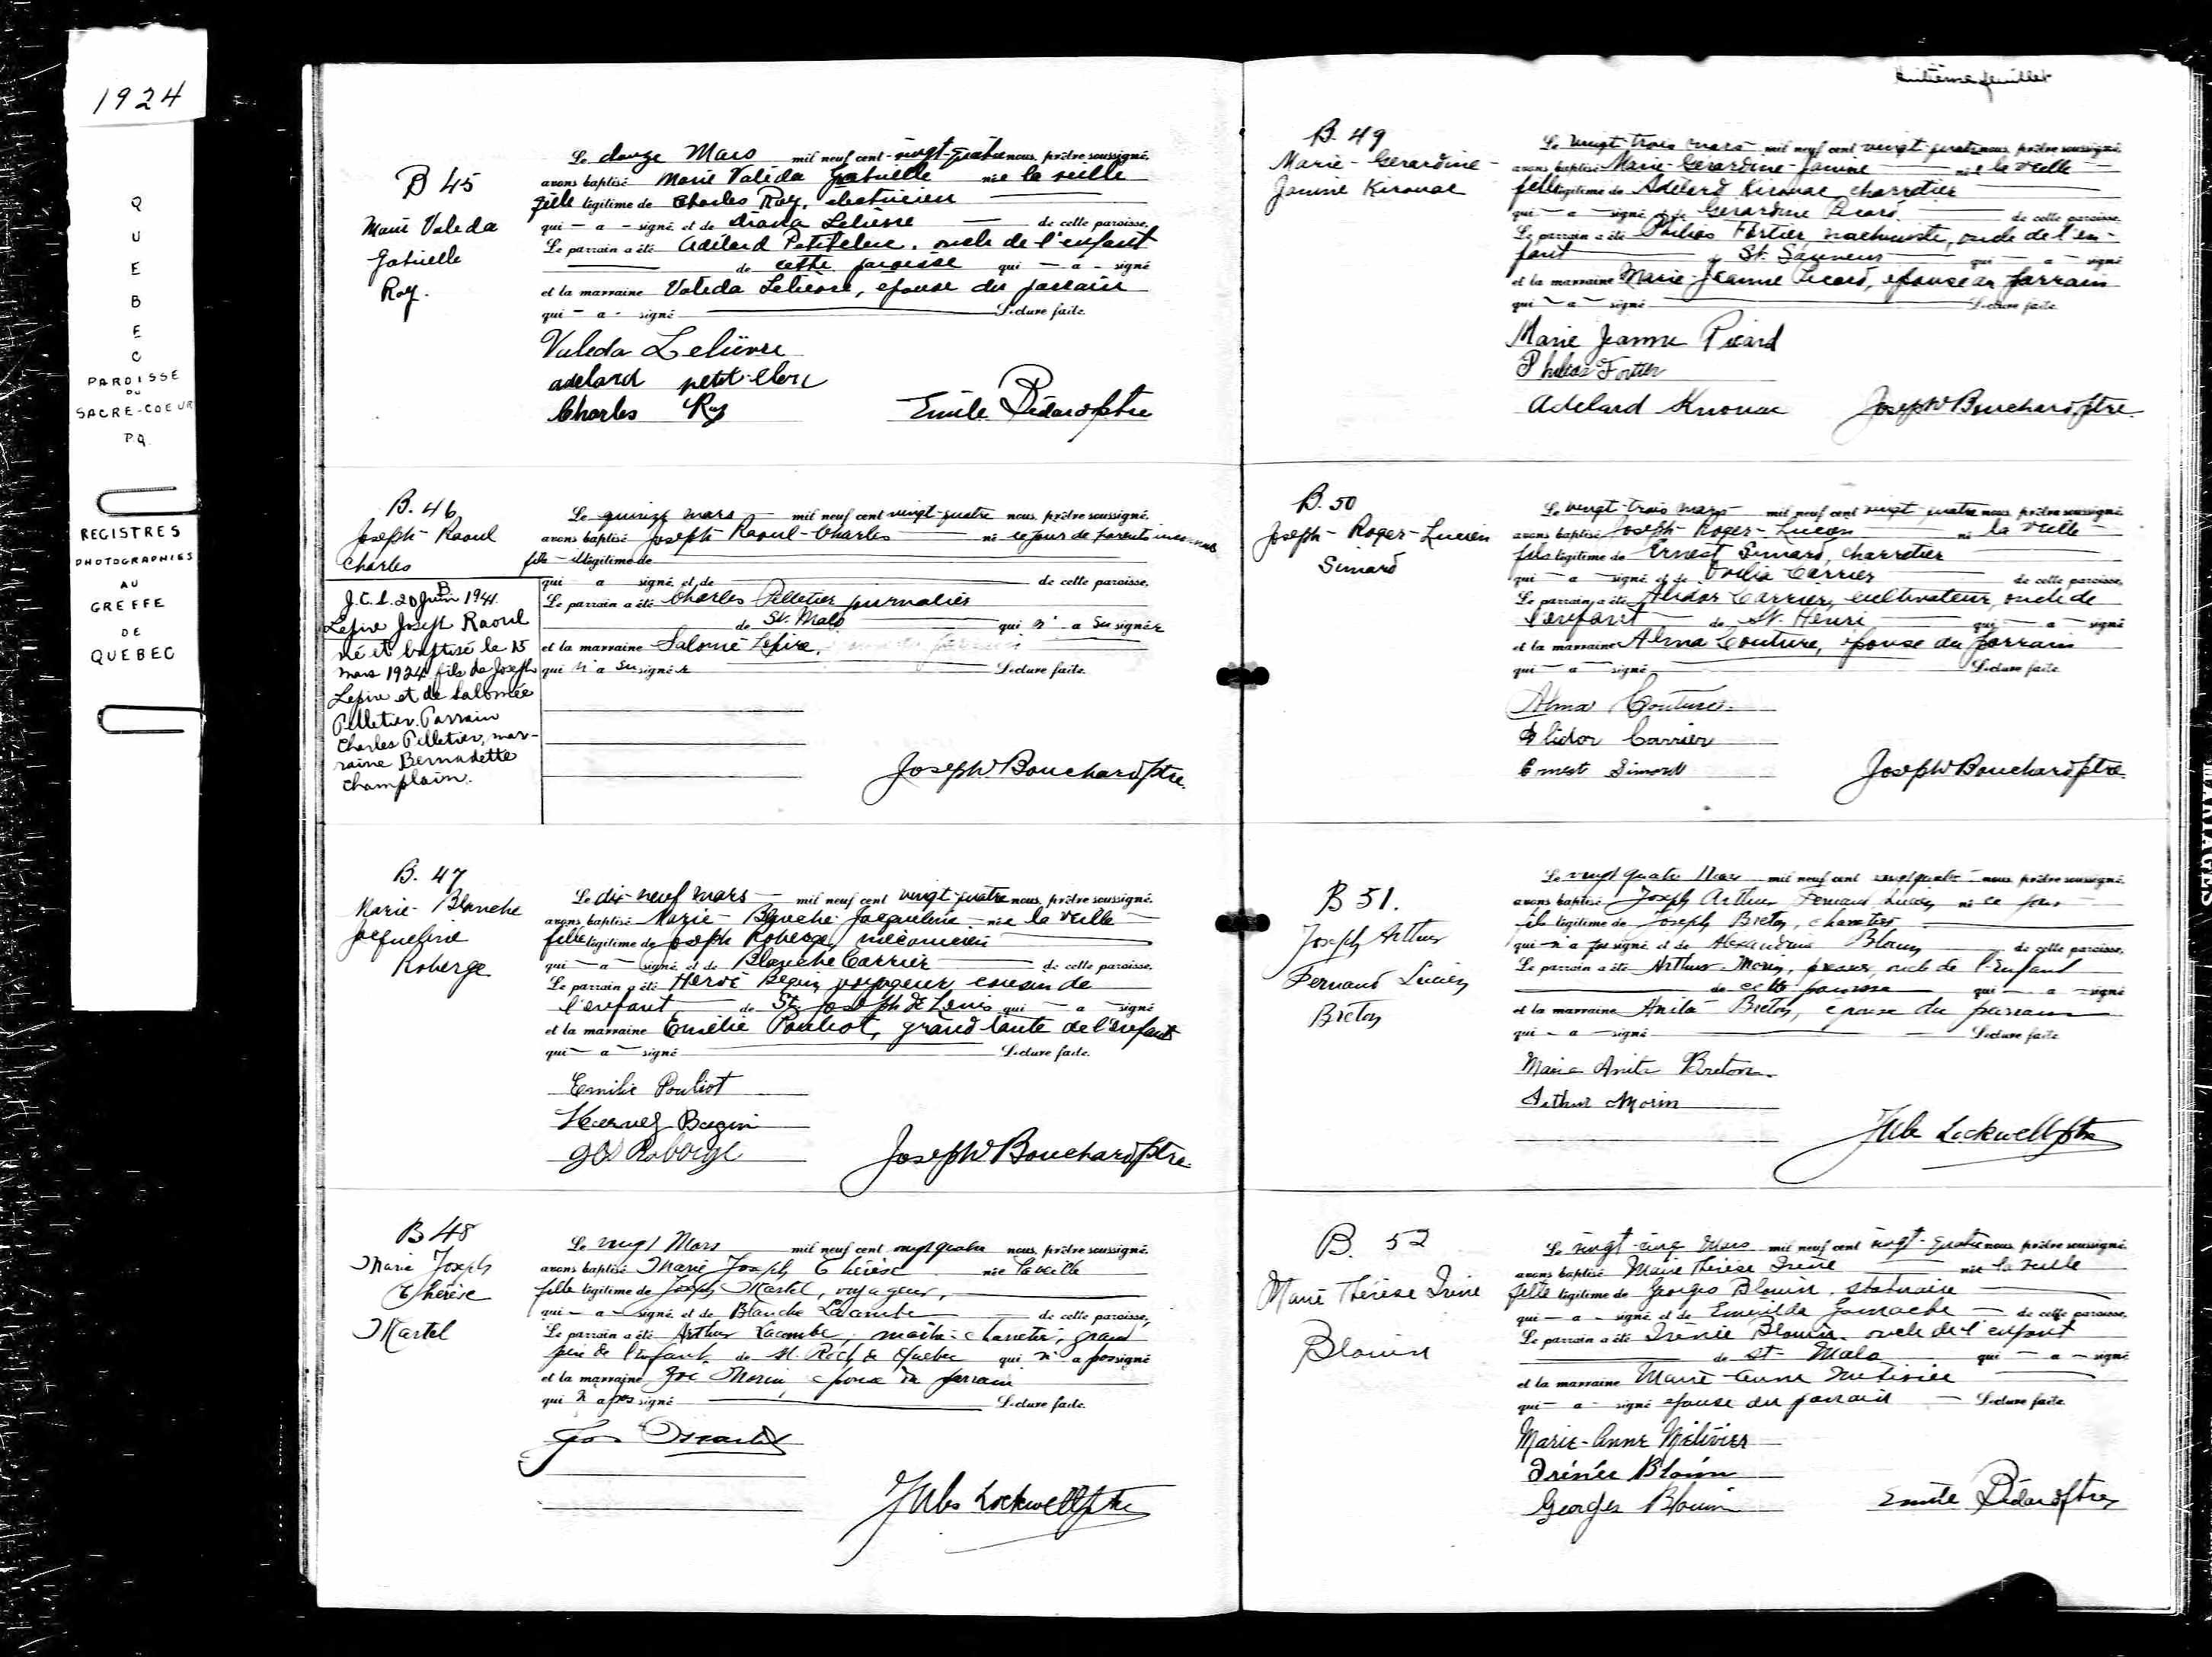 1924
QUEBEC
PAROISSE
DU
SACRE-COEUR
P.Q.
REGISTRES
PHOTOGRAPHIES
AU
GREFFE
DE
QUEBEC
B 45
Marie Valeda
Gabrielle
Roy.
Le douze Mars mil neuf cent vingt-quatre nous, prêtre soussigné,
avons baptisé Marie Valéda Gabrielle née la veille
fille légitime de Charles Roy, électricien
qui - a - signé et de Diana Lelièvre de cette paroisse.
Le parrain a été Adélard Petitclerc, oncle de l'enfant
de cette paroisse qui - a - signé
et la marraine Valeda Lelièvre, épouse du parrain
qui - a - signé Lecture faite.
Valeda Lelièvre
adelard petit-clerc
Charles Roy
Emile Bédard ptre
B. 46
Joseph-Raoul
Charles
Le quinze mars mil neuf cent vingt-quatre nous, prêtre soussigné,
avons baptisé Joseph-Raoul-Charles né ce jour de parents inconnus
fils illégitime de
qui a signé et de de cette paroisse.
Le parrain a été Charles Pelletier journalier
de St. Malo qui n'a su signer
et la marraine Salomé Lepire,
qui n'a su signer Lecture faite.
Joseph W Bouchard ptre.
B
J.C.S. 20 Juin 1941.
Lepire Joseph Raoul
né et baptisé le 15
mars 1924 fils de Joseph
Lepire et de Salomée
Pelletier. Parrain
Charles Pelletier, mar-
raine Bernadette
Champlain.
B. 47
Marie-Blanche
Jacqueline
Roberge
Le dix-neuf mars mil neuf cent vingt-quatre nous, prêtre soussigné,
avons baptisé Marie-Blanche-Jacqueline née la veille
fille légitime de Joseph Roberge, mécanicien
qui - a - signé et de Blanche Carrier de cette paroisse.
Le parrain a été Hervé Bégin, voyageur, cousin de
l'enfant de St Joseph de Lévis qui - a - signé
et la marraine Emélie Pouliot, grand'tante de l'enfant
qui - a - signé Lecture faite.
Emilie Pouliot
Hervey Begin
Jos Roberge
Joseph W Bouchard ptre
B 48
Marie Joseph
Thérèse
Martel
Le vingt Mars mil neuf cent vingt quatre nous, prêtre soussigné,
avons baptisé Marie Joseph Thérèse née la veille
fille légitime de Joseph Martel, voyageur,
qui - a - signé et de Blanche Lacombe de cette paroisse,
Le parrain a été Arthur Lacombe, maître-charretier, grand
père de l'enfant, de St. Roch de Québec qui n'a pas signé
et la marraine Morin épouse du parrain
qui n'a pas signé Lecture faite.
Jos Martel
Jules Lockwell ptre
Huitième feuillet
B. 49
Marie-Gérardine-
Janine Kirouac
Le vingt-trois mars mil neuf cent vingt-quatre nous, prêtre soussigné,
avons baptisé Marie-Gérardine-Janine née la veille
fille légitime de Adélard Kirouac, charretier
qui - a - signé et de Gérardine Picard de cette paroisse.
Le parrain a été Philéas Fortier, machiniste, oncle de l'en-
fant de St. Sauveur qui - a - signé
et la marraine Marie-Jeanne Picard, épouse du parrain
qui - a - signé Lecture faite
Marie Jeanne Picard
Phileas Fortier
Adelard Kirouac
Joseph W Bouchard, ptre.
B. 50
Joseph-Roger-Lucien
Simard
Le vingt-trois mars mil neuf cent vingt quatre nous, prêtre soussigné,
avons baptisé Joseph-Roger-Lucien né la veille
fils légitime de Ernest Simard, charretier
qui - a - signé et de Carrier de cette paroisse.
Le parrain a été Alidor Carrier, cultivateur, oncle de
l'enfant de St. Henri qui - a - signé
et la marraine Alma Couture, épouse du parrain
qui - a - signé Lecture faite
Alma Couture
Alidor Carrier
Ernest Simard
Joseph W Bouchard ptre.
B 51.
Joseph Arthur
Fernand Lucien
Breton
Le vingt quatre Mars mil neuf cent vingt quatre nous, prêtre soussigné,
avons baptisé Joseph Arthur Fernand Lucien né ce jour
fils légitime de Joseph Breton, charretier
qui n'a pas signé et de Alexandrine Blouin de cette paroisse,
Le parrain a été Arthur Morin, oncle de l'enfant
de cette paroisse qui - a - signé
et la marraine Anita Breton, épouse du parrain
qui - a - signé Lecture faite
Marie Anita Breton.
Arthur Morin
Jules Lockwell ptre
B. 52
Marie Thérèse Irène
Blouin
Le vingt-cinq Mars mil neuf cent vingt-quatre nous, prêtre soussigné,
avons baptisé Marie Thérèse Irène née la veille
fille légitime de Georges Blouin, statuaire
qui - a - signé et de Emerilda Gamache de cette paroisse,
Le parrain a été Irénée Blouin, oncle de l'enfant
de St- Malo qui - a - signé
et la marraine Marie-Anne Métivier
qui - a - signé épouse du parrain Lecture faite
Marie-Anne Métivier
Irénée Blouin
Georges Blouin
Emile Bédard ptre
MARIAGES